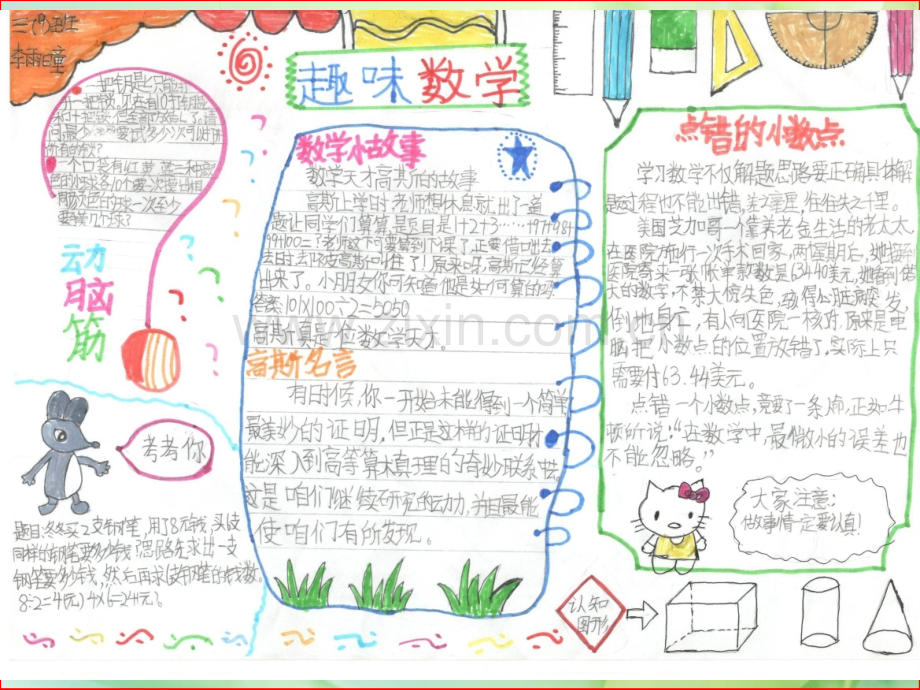 三(9)班
李雨瞳
趣味数学
一把钥匙只能
开一把锁,现在有10打钥匙
所有的锁?
一个口袋有红黄蓝三种颜
色的球各10个要一次
同颜色的球一次至少
要拿几个球?
动
脑
筋
数学小故事
数学天才高斯的故事
高斯上学时老师想休息就出了一道
题让同学们算算,是题目是1+2+3……+97+98+
99+100=?老师这下可要等到下课了,正要借口出去
去时去被高斯叫住了!原来呀,高斯已经算
出来了。小朋友你可知道他是如何算的吗?
答案101X100÷2=5050
高斯真是一位数学天才。
高斯名言
有时候,你一开始未能得到一个简单
最美妙的证明,但正是这样的证明才
能深入到高等算术真理的奇妙联系中去。
这是咱们继续研究的动力,并且最能
使咱们有所发现。
点错的小数点
学习数学不仅解题思路要正确具体解
题过程也不能出错,差之毫里,往往失之千里。
美国芝加哥一靠养老金生活的老太太
在医院施行一次手术回家,两星期后,她接到
医院寄来一张帐单款数是63440美元,她看到偌
大的数字,不禁大惊失色,吓得心脏病突发,
倒地身亡,有人向医院一核对,原来是电
脑把小数点的位置放错了,实际上只
需要付63.44美元。
点错一个小数点,竟要了一条人命,正如牛
顿所说:“在数学中,最微小的误差也
不能忽略。”
考考你
题目:冬冬买2支钢笔,用了8元钱,买6支
同样的钢笔要多少钱?思路先求出一支
钢笔要多少钱,然后再求6支钢笔的钱数。
8÷2=4(元)4X6=24(元)。
大家注意:
做事情一定要认真!
认知
图形
www.zixin.com.cn